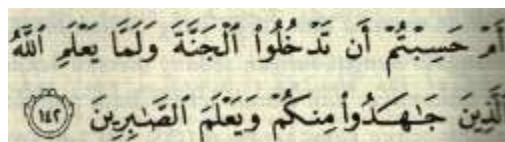 أَمْ حَسِبْتُمْ أَن تَدْخُلُوا۟ ٱلْجَنَّةَ وَلَمَّا يَعْلَمِ ٱللَّهُ
ٱلَّذِينَ جَـٰهَدُوا۟ مِنكُمْ وَيَعْلَمَ ٱلصَّـٰبِرِينَ ١٤٢